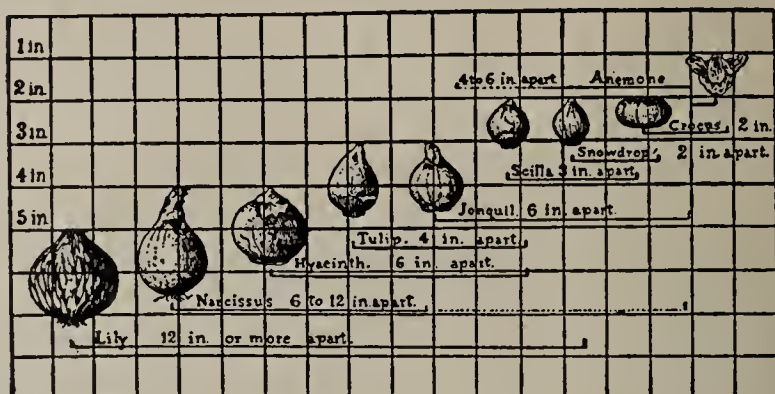 1 in
4 to 6 in. apart Anemone
2 in
Crocus 2 in.
3 in
Snowdrop 2 in apart.
Scilla 3 in. apart
4 in
Jonquil. 6 in. apart.
5 in
Tulip. 4 in. apart.
Hyacinth. 6 in. apart.
Narcissus 6 to 12 in. apart.
Lily 12 in. or more apart.